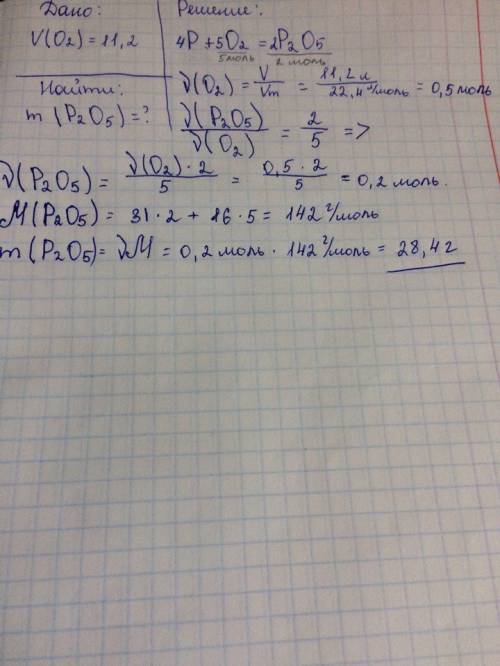 Дано:
V(O₂) = 11,2
Найти:
m (P₂O₅) = ?
Решение:
4P + 5O₂ = 2P₂O₅
5 моль 2 моль
ν(O₂) = V/Vm = 11,2 л / 22,4 л/моль = 0,5 моль
ν(P₂O₅) / ν(O₂) = 2/5 =>
ν(P₂O₅) = ν(O₂) · 2 / 5 = 0,5 · 2 / 5 = 0,2 моль.
M(P₂O₅) = 31 · 2 + 16 · 5 = 142 г/моль
m(P₂O₅) = νM = 0,2 моль · 142 г/моль = 28,4 г